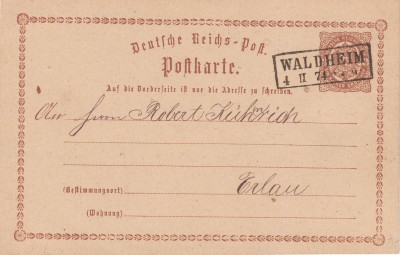 Deutsche Reichs-Post.
Postkarte.
WALDHEIM
4 II 74
Auf die Vorderseite ist nur die Adresse zu schreiben.
An Herrn Robert
(Bestimmungsort) Erlau
(Wohnung)